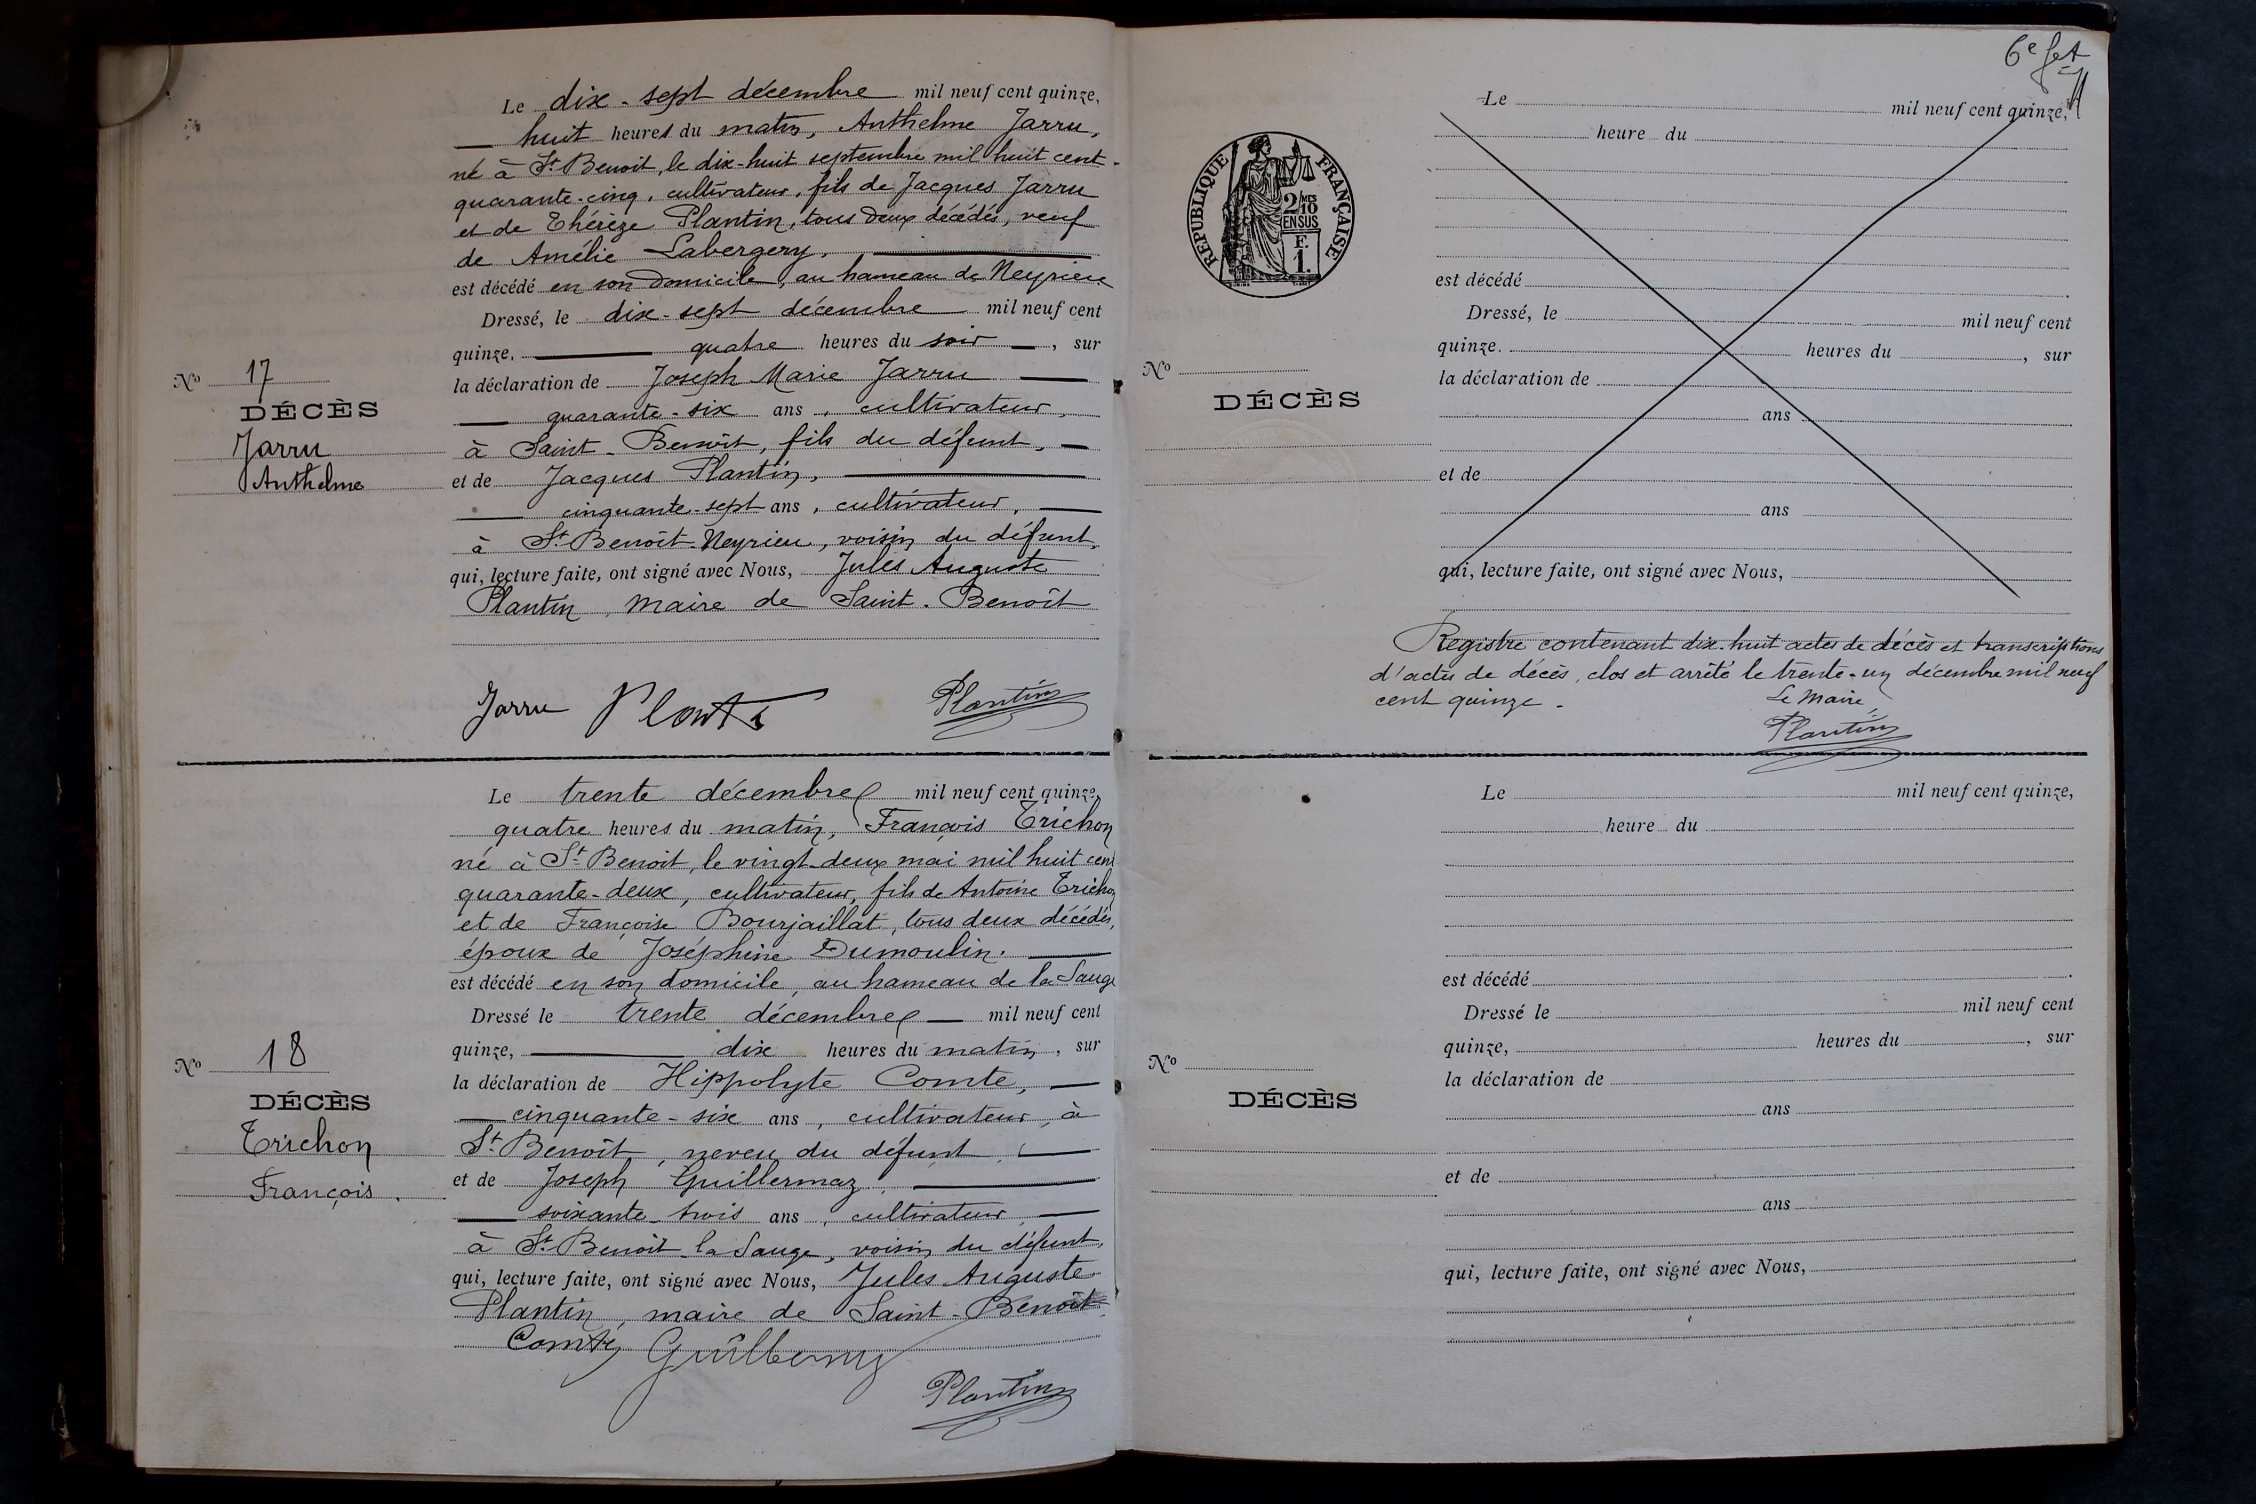 Le dix-sept décembre mil neuf cent quinze,
huit heures du matin, Anthelme Jarru,
né à St Benoit, le dix-huit septembre mil huit cent
quarante-cinq, cultivateur, fils de Jacques Jarru
et de Thérèze Plantin, tous deux décédés, veuf
de Amélie Labergery.
est décédé en son domicile, au hameau de Neyrieu
Dressé, le dix-sept décembre mil neuf cent
quinze, quatre heures du soir, sur
No 17
la déclaration de Joseph Marie Jarru
DÉCÈS
quarante-six ans, cultivateur,
Jarru
à Saint-Benoît, fils du défunt,
Anthelme
et de Jacques Plantin,
cinquante-sept ans, cultivateur,
à St Benoît-Neyrieu, voisin du défunt,
qui, lecture faite, ont signé avec Nous, Jules Auguste
Plantin, maire de Saint-Benoît
Jarru Plantin Plantin
Le trente décembre mil neuf cent quinze,
quatre heures du matin, François Trichon
né à St Benoit, le vingt-deux mai mil huit cent
quarante-deux, cultivateur, fils de Antoine Trichon
et de Françoise Bourjaillat, tous deux décédés,
époux de Joséphine Dumoulin.
est décédé en son domicile, au hameau de la Sauge
Dressé le trente décembre mil neuf cent
quinze, dix heures du matin, sur
No 18
la déclaration de Hippolyte Comte,
DÉCÈS
cinquante-six ans, cultivateur, à
Trichon
St Benoît, neveu du défunt,
et de Joseph Guillermaz,
François.
soixante-trois ans, cultivateur,
à St Benoît-la Sauge, voisin du défunt,
qui, lecture faite, ont signé avec Nous, Jules Auguste
Plantin, maire de Saint-Benoît
Comte
Plantin
6e
Le mil neuf cent quinze,
heure du
RÉPUBLIQUE FRANÇAISE
2/10MES
EN SUS
F.
1.
est décédé
Dressé, le mil neuf cent
quinze. heures du , sur
No
la déclaration de
DÉCÈS
ans
et de
ans
qui, lecture faite, ont signé avec Nous,
Registre contenant dix-huit actes de décès et transcriptions
d'actes de décès, clos et arrêté le trente-un décembre mil neuf
cent quinze.
Le Maire,
Plantin
Le mil neuf cent quinze,
heure du
est décédé
Dressé le mil neuf cent
quinze, heures du , sur
No
la déclaration de
DÉCÈS
ans
et de
ans
qui, lecture faite, ont signé avec Nous,